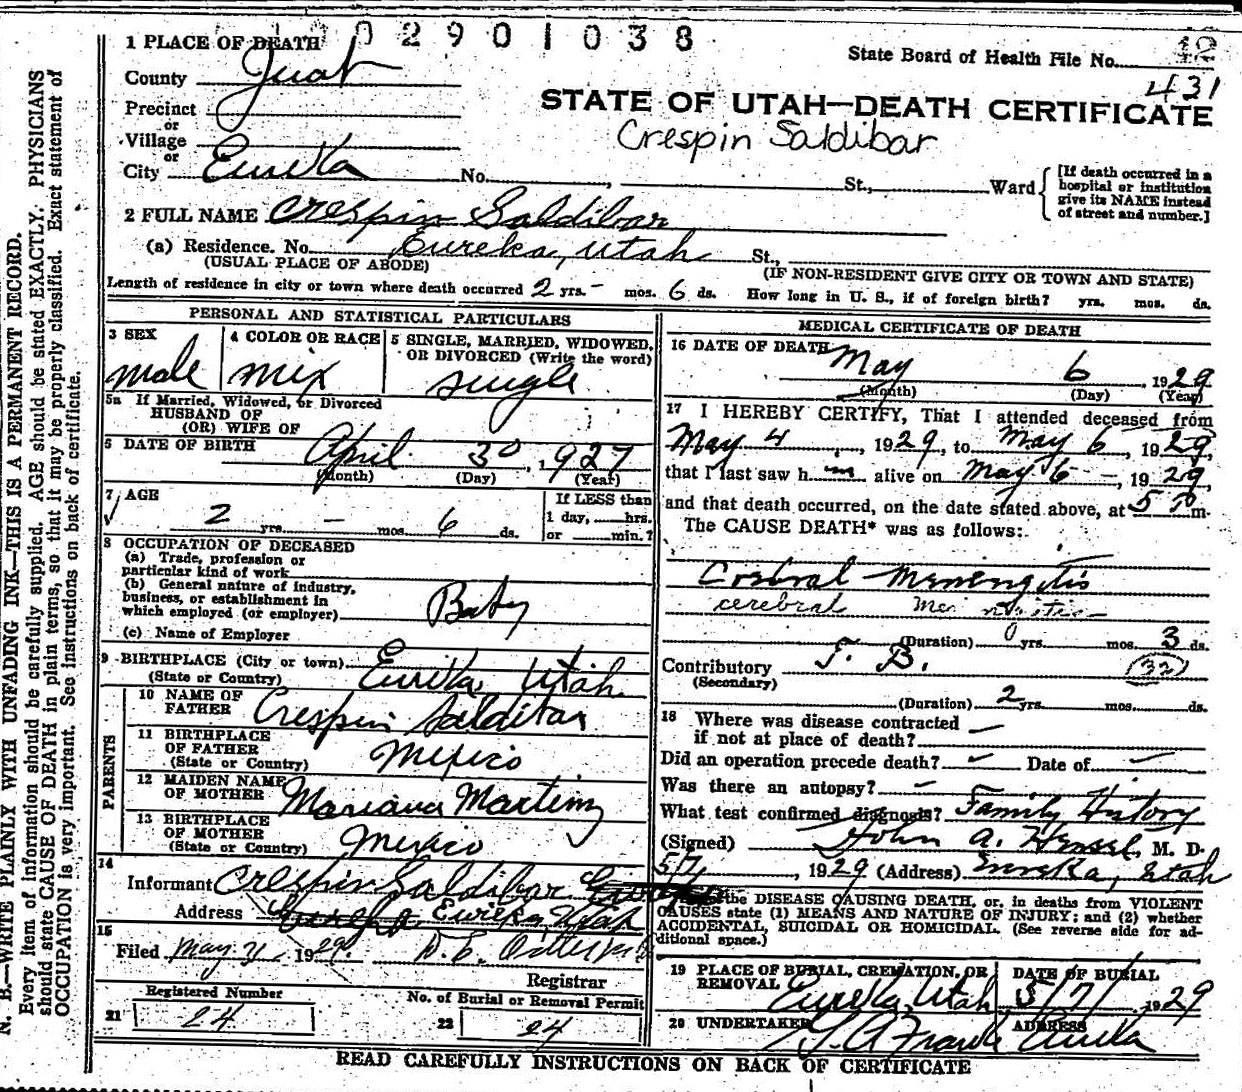 02901038
State Board of Health File No. 12
431
1 PLACE OF DEATH
County Juab
STATE OF UTAH—DEATH CERTIFICATE
Precinct
or
Village
Crespin Saldibar
or
City Eureka No. St., Ward
[If death occurred in a hospital or institution give its NAME instead of street and number.]
2 FULL NAME Crespin Saldibar
(a) Residence. No. Eureka, Utah St.,
(USUAL PLACE OF ABODE) (IF NON-RESIDENT GIVE CITY OR TOWN AND STATE)
Length of residence in city or town where death occurred 2 yrs. - mos. 6 ds. How long in U. S., if of foreign birth? yrs. mos. ds.
PERSONAL AND STATISTICAL PARTICULARS
3 SEX
male
4 COLOR OR RACE
mix
5 SINGLE, MARRIED, WIDOWED,
OR DIVORCED (Write the word)
single
5a If Married, Widowed, or Divorced
HUSBAND OF
(OR) WIFE OF
6 DATE OF BIRTH
April 30, 1927
(Month) (Day) (Year)
7 AGE
2 yrs. — mos. 6 ds.
If LESS than
1 day, hrs.
or min.?
8 OCCUPATION OF DECEASED
(a) Trade, profession or
particular kind of work
(b) General nature of industry,
business, or establishment in
which employed (or employer) Baby
(c) Name of Employer
9 BIRTHPLACE (City or town)
(State or Country) Eureka, Utah
PARENTS
10 NAME OF
FATHER Crespin Saldibar
11 BIRTHPLACE
OF FATHER
(State or Country) Mexico
12 MAIDEN NAME
OF MOTHER Mariana Martinez
13 BIRTHPLACE
OF MOTHER
(State or Country) Mexico
14
Informant Crespin Saldibar
Address Eureka Eureka Utah
15
Filed May 31 1929.
Registrar
Registered Number
21 24
No. of Burial or Removal Permit
22 24
MEDICAL CERTIFICATE OF DEATH
16 DATE OF DEATH
May 6, 1929
(Month) (Day) (Year)
17 I HEREBY CERTIFY, That I attended deceased from
May 4, 1929, to May 6, 1929,
that I last saw h m alive on May 6 —, 1929,
and that death occurred, on the date stated above, at 5 P m.
The CAUSE DEATH* was as follows:
Cerbral Menengitis
cerebral Meningitis
(Duration) 0 yrs. mos. 3 ds.
Contributory T. B. (32)
(Secondary)
(Duration) 2 yrs. mos. ds.
18 Where was disease contracted
if not at place of death? —
Did an operation precede death? — Date of —
Was there an autopsy? —
What test confirmed diagnosis? Family History
(Signed) John A. Hensel, M. D.
5/7, 1929 (Address) Eureka, Utah
the DISEASE CAUSING DEATH, or, in deaths from VIOLENT
CAUSES state (1) MEANS AND NATURE OF INJURY; and (2) whether
ACCIDENTAL, SUICIDAL OR HOMICIDAL. (See reverse side for ad-
ditional space.)
19 PLACE OF BURIAL, CREMATION, OR
REMOVAL Eureka, Utah
DATE OF BURIAL
5/7/ 1929
20 UNDERTAKER
ADDRESS
Eureka
READ CAREFULLY INSTRUCTIONS ON BACK OF CERTIFICATE
N. B.—WRITE PLAINLY WITH UNFADING INK—THIS IS A PERMANENT RECORD.
Every item of information should be carefully supplied. AGE should be stated EXACTLY. PHYSICIANS
should state CAUSE OF DEATH in plain terms, so that it may be properly classified. Exact statement of
OCCUPATION is very important. See instructions on back of certificate.